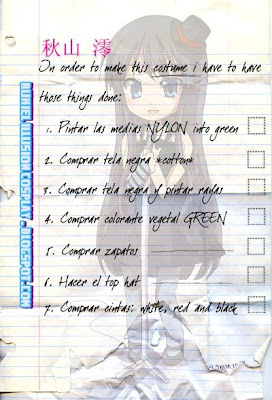 秋山 澪
In order to make this costume i have to have
those things done:
1. Pintar las medias NYLON into green
2. Comprar tela negra *cotton*
3. Comprar tela negra y pintar rayas
4. Comprar colorante vegetal GREEN
5. Comprar zapatos
6. Hacer el top hat
7. Comprar cintas: white, red and black
RUHEELILUSION.COSPLAY.BLOGSPOT.COM